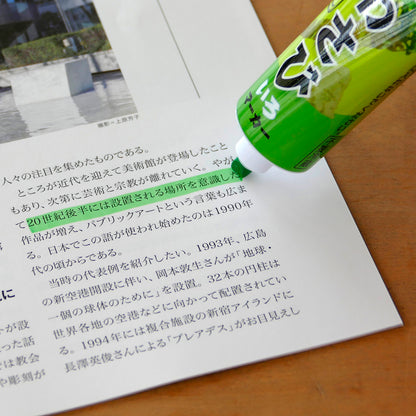 撮影=上原芳子
人々の注目を集めたものである。
ところが近代を迎えて美術館が登場したこと
もあり、次第に芸術と宗教が離れていく。やが
て20世紀後半には設置される場所を意識した
作品が増え、パブリックアートという言葉も広ま
る。日本でこの語が使われ始めたのは1990年
代の頃からである。
当時の代表例を紹介したい。1993年、広島
の新空港開設に伴い、岡本敦生さんが「地球・
一個の球体のために」を設置。32本の円柱は
世界各地の空港などに向かって配置されてい
る。1994年には複合施設の新宿アイランドに
長澤英俊さんによる「プレアデス」がお目見えし
に
トが設
った話
では教会
や彫刻が
わさび
いろ
マーカー